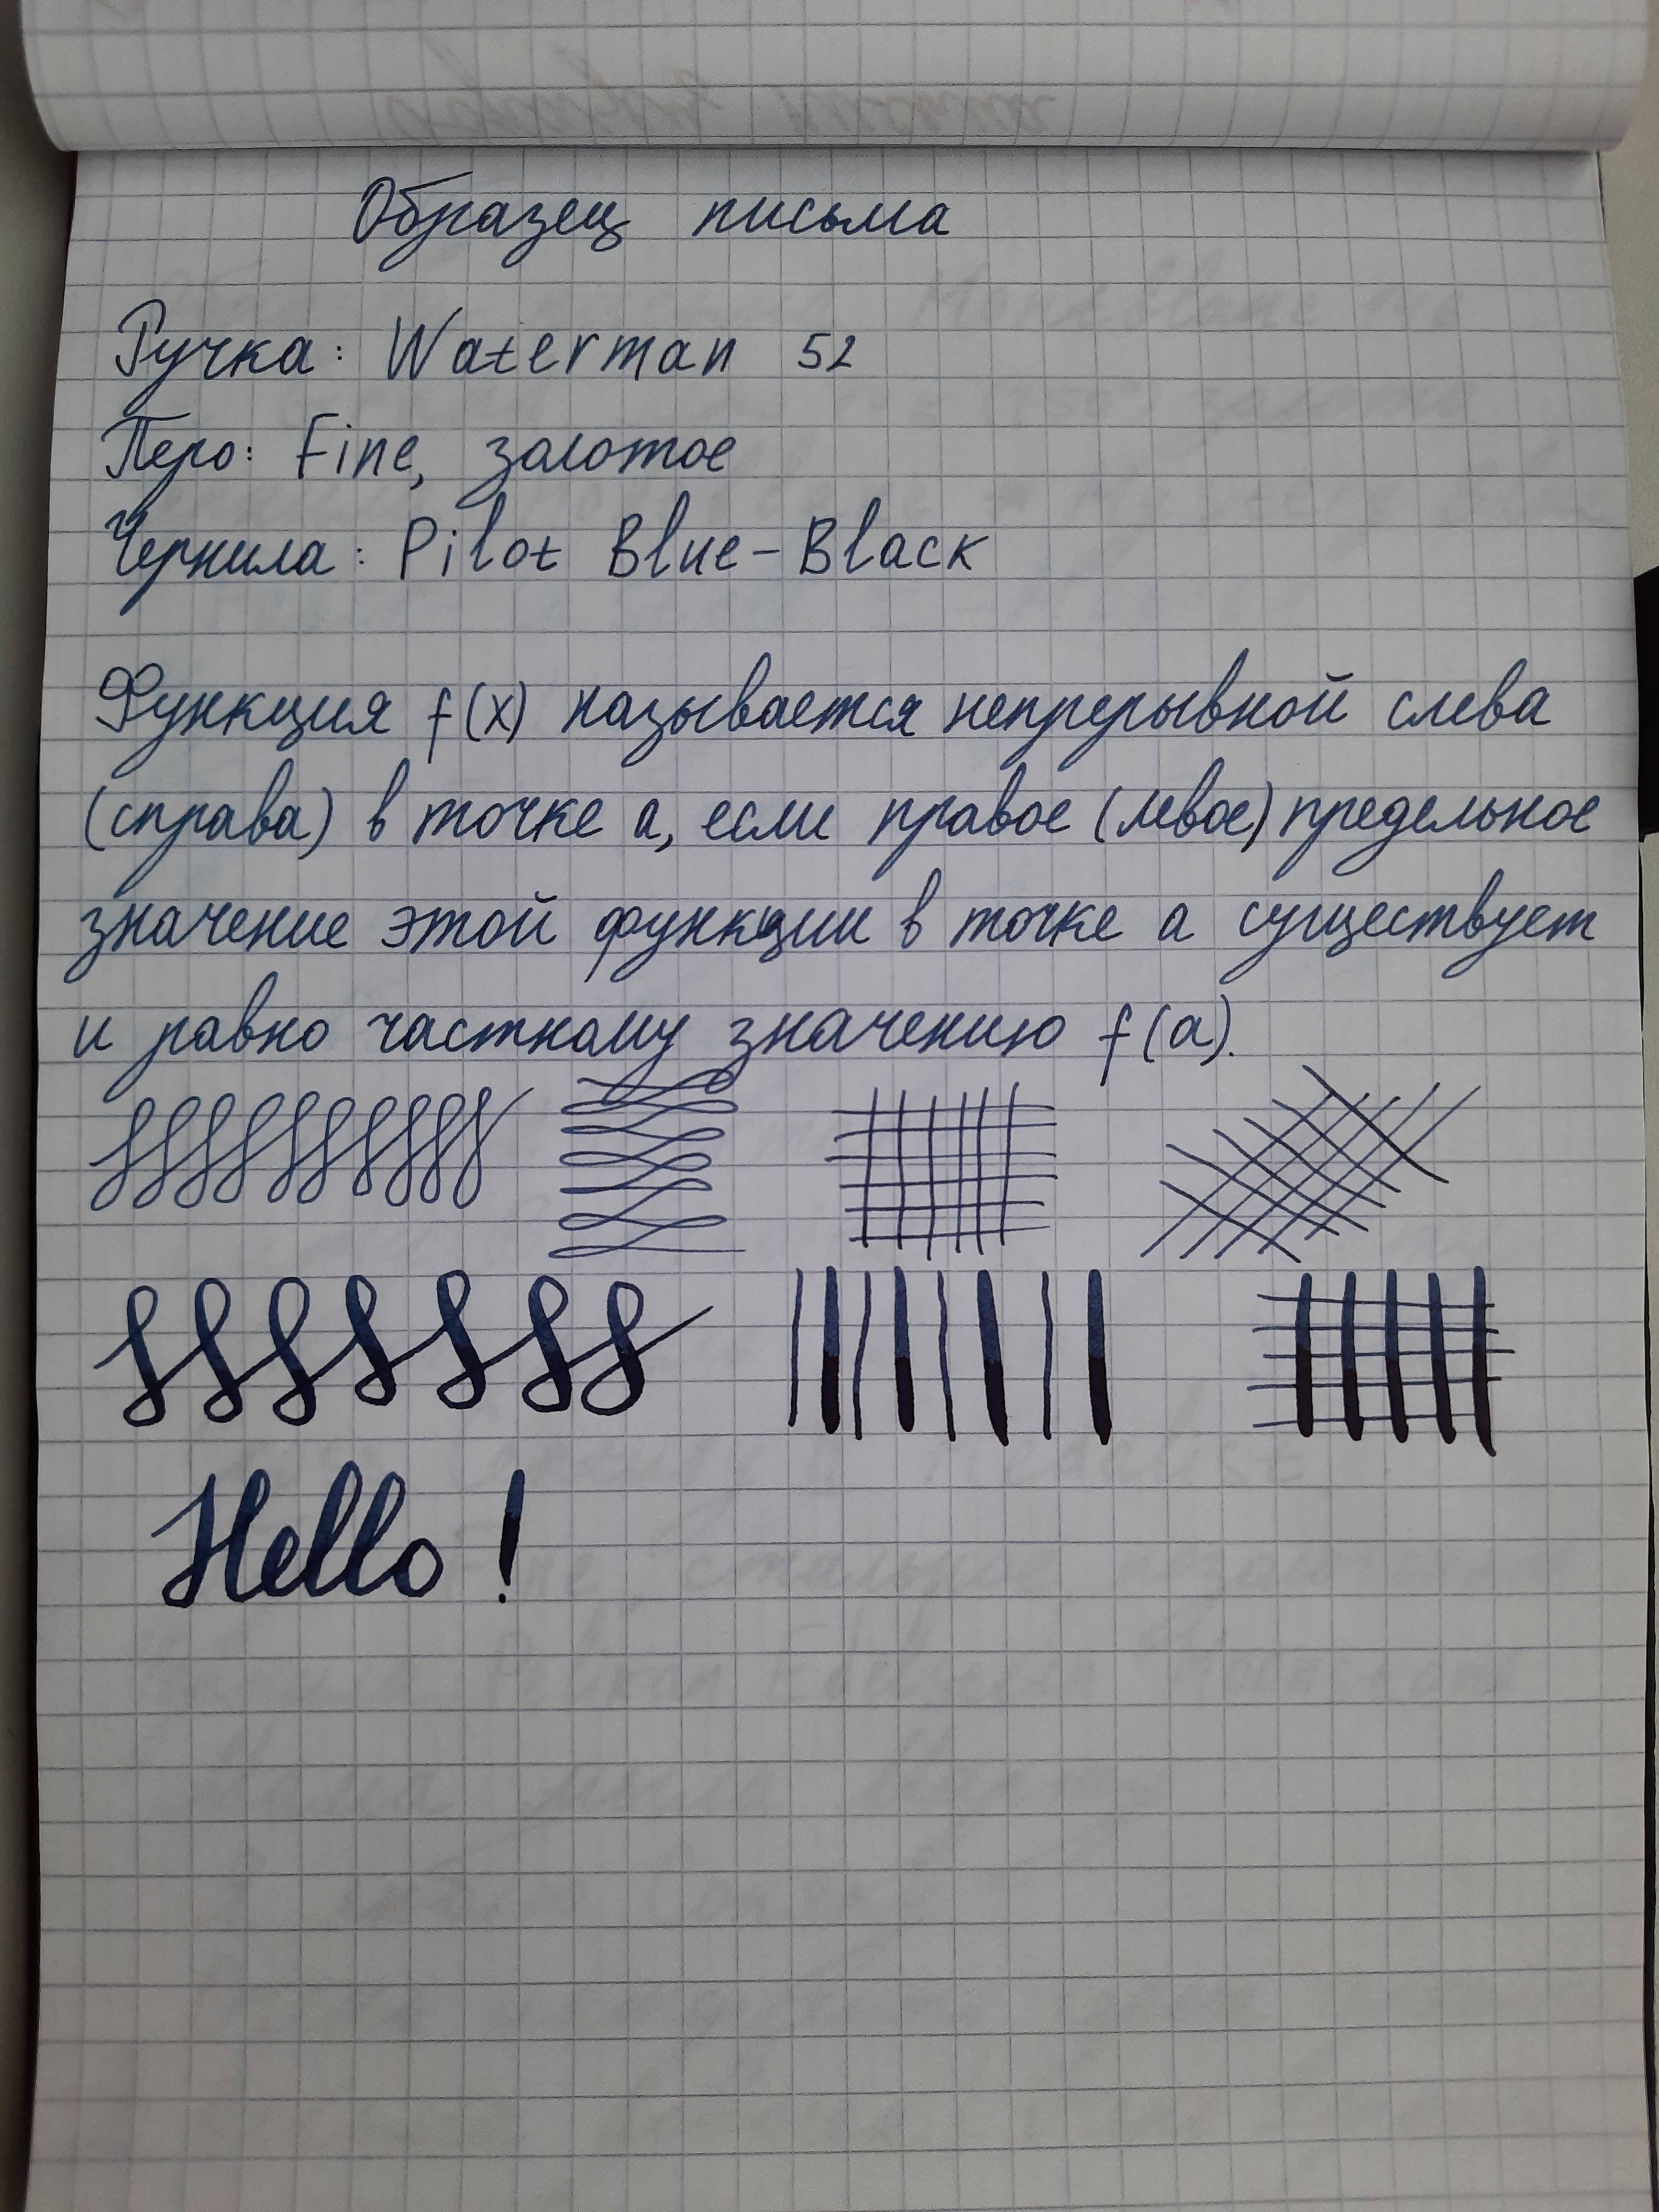 Образец письма
Ручка: Waterman 52
Перо: Fine, золотое
Чернила: Pilot Blue-Black
Функция f(x) называется непрерывной слева
(справа) в точке a, если правое (левое) предельное
значение этой функции в точке a существует
и равно частному значению f(a).
Hello!